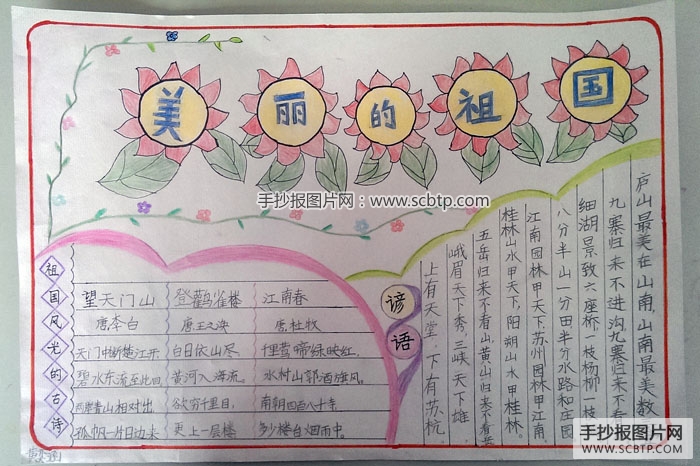 美丽的祖国
手抄报图片网：www.scbtp.com
祖国风光的古诗
望天门山
唐李白
天门中断楚江开
碧水东流至此回
两岸青山相对出
孤帆一片日边来
登鹳雀楼
唐王之涣
白日依山尽
黄河入海流.
欲穷千里目,
更上一层楼
江南春
唐.杜牧
千里莺啼绿映红.
水村山郭酒旗风.
南朝四百八十寺
多少楼台烟雨中.
谚语
庐山最美在山南,山南最美教
九寨归来不进沟九寨归来不看
细湖景致六座桥一枝杨柳一枝
八分半山一分田半分水路和庄园
江南园林甲天下,苏州园林甲江南
桂林山水甲天下,阳朔山水甲桂林.
五岳归来不看山,黄山归来不看岳
峨眉天下秀,三峡天下雄.
上有天堂,下有苏杭.
手抄报图片网
WWW.SCBTP.COM